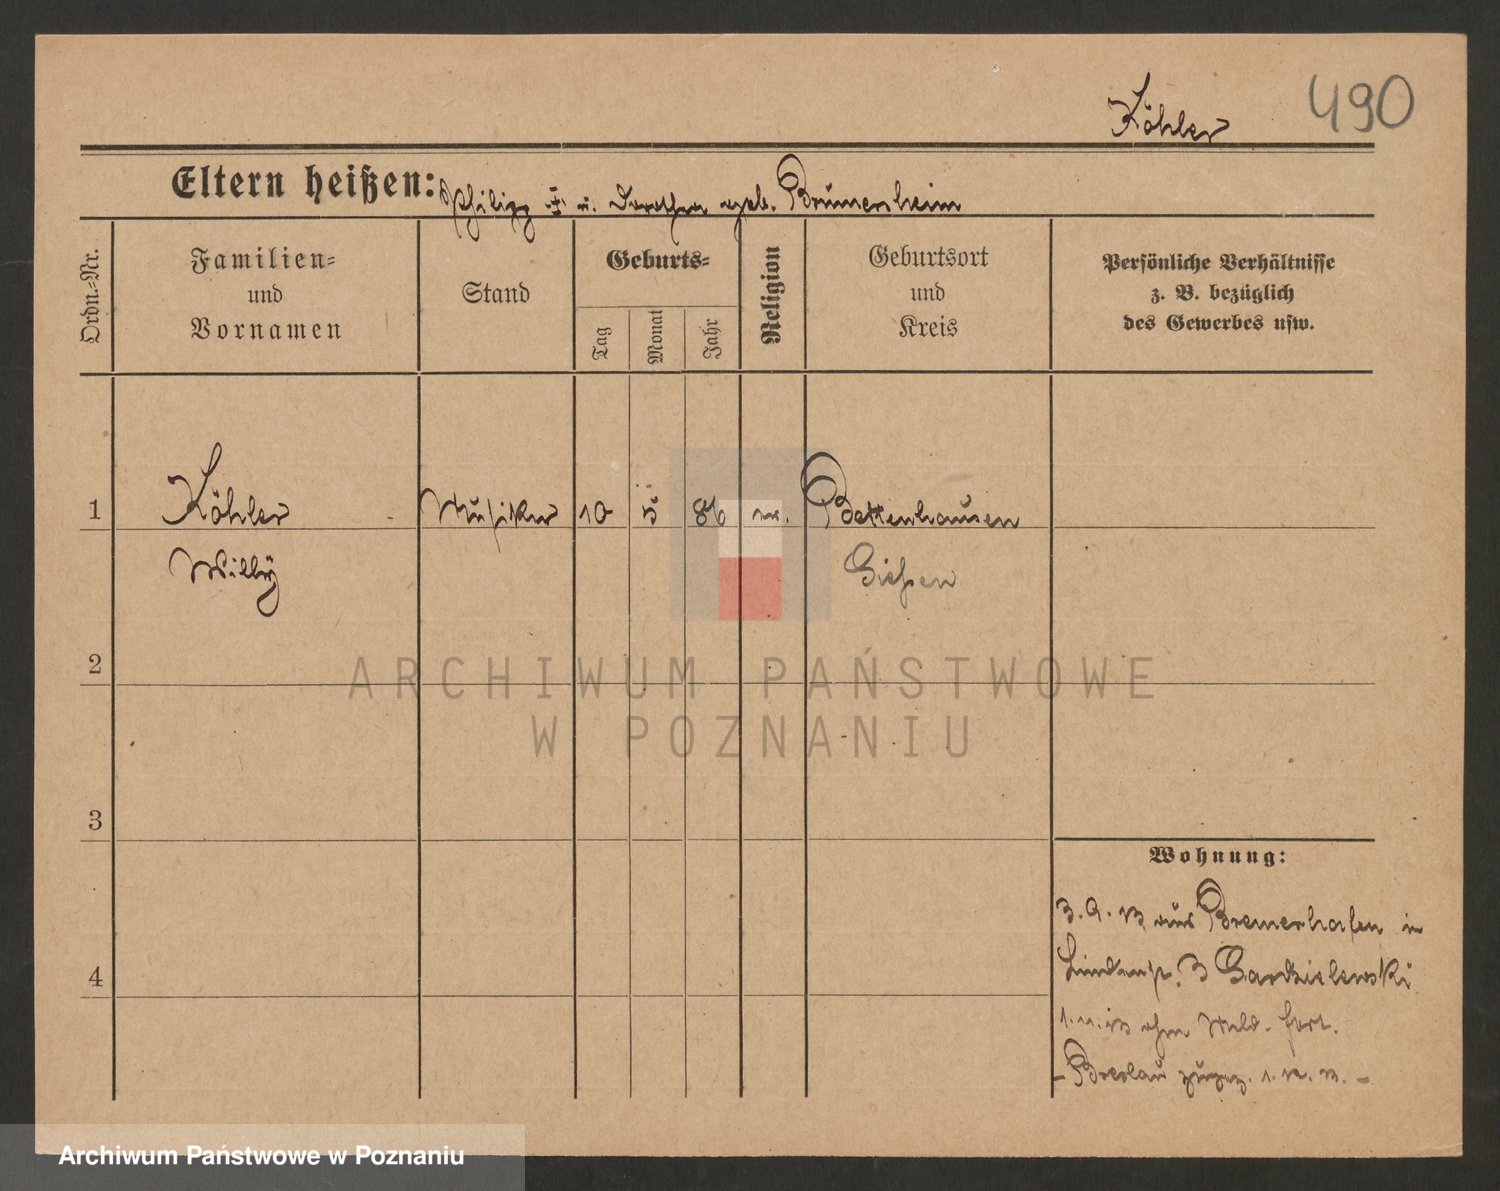 490
Köhler
Eltern heißen: Philipp u. Dorothea geb. Brümersheim
Ordn.-Nr.
Familien-
und
Vornamen
Stand
Geburts-
Tag
Monat
Jahr
Religion
Geburtsort
und
Kreis
Persönliche Verhältnisse
z. B. bezüglich
des Gewerbes usw.
1
Köhler
Musiker
10
5
86
Bettenhausen
Willÿ
Gießen
2
ARCHIWUM PAŃSTWOWE
W POZNANIU
3
Wohnung:
3. 9. 13 aus Bremerhafen in
Lindenstr. 3 Gardzielewski
4
1. 11. 13 ohne Meld. fort.
- Breslau zugez. 1. 12. 13. -
Archiwum Państwowe w Poznaniu